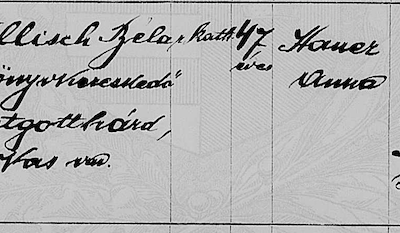 llisch Béla r. kath. 47 Hauer
önyvkereskedő éves Anna
tgotthárd,
Vas vm.